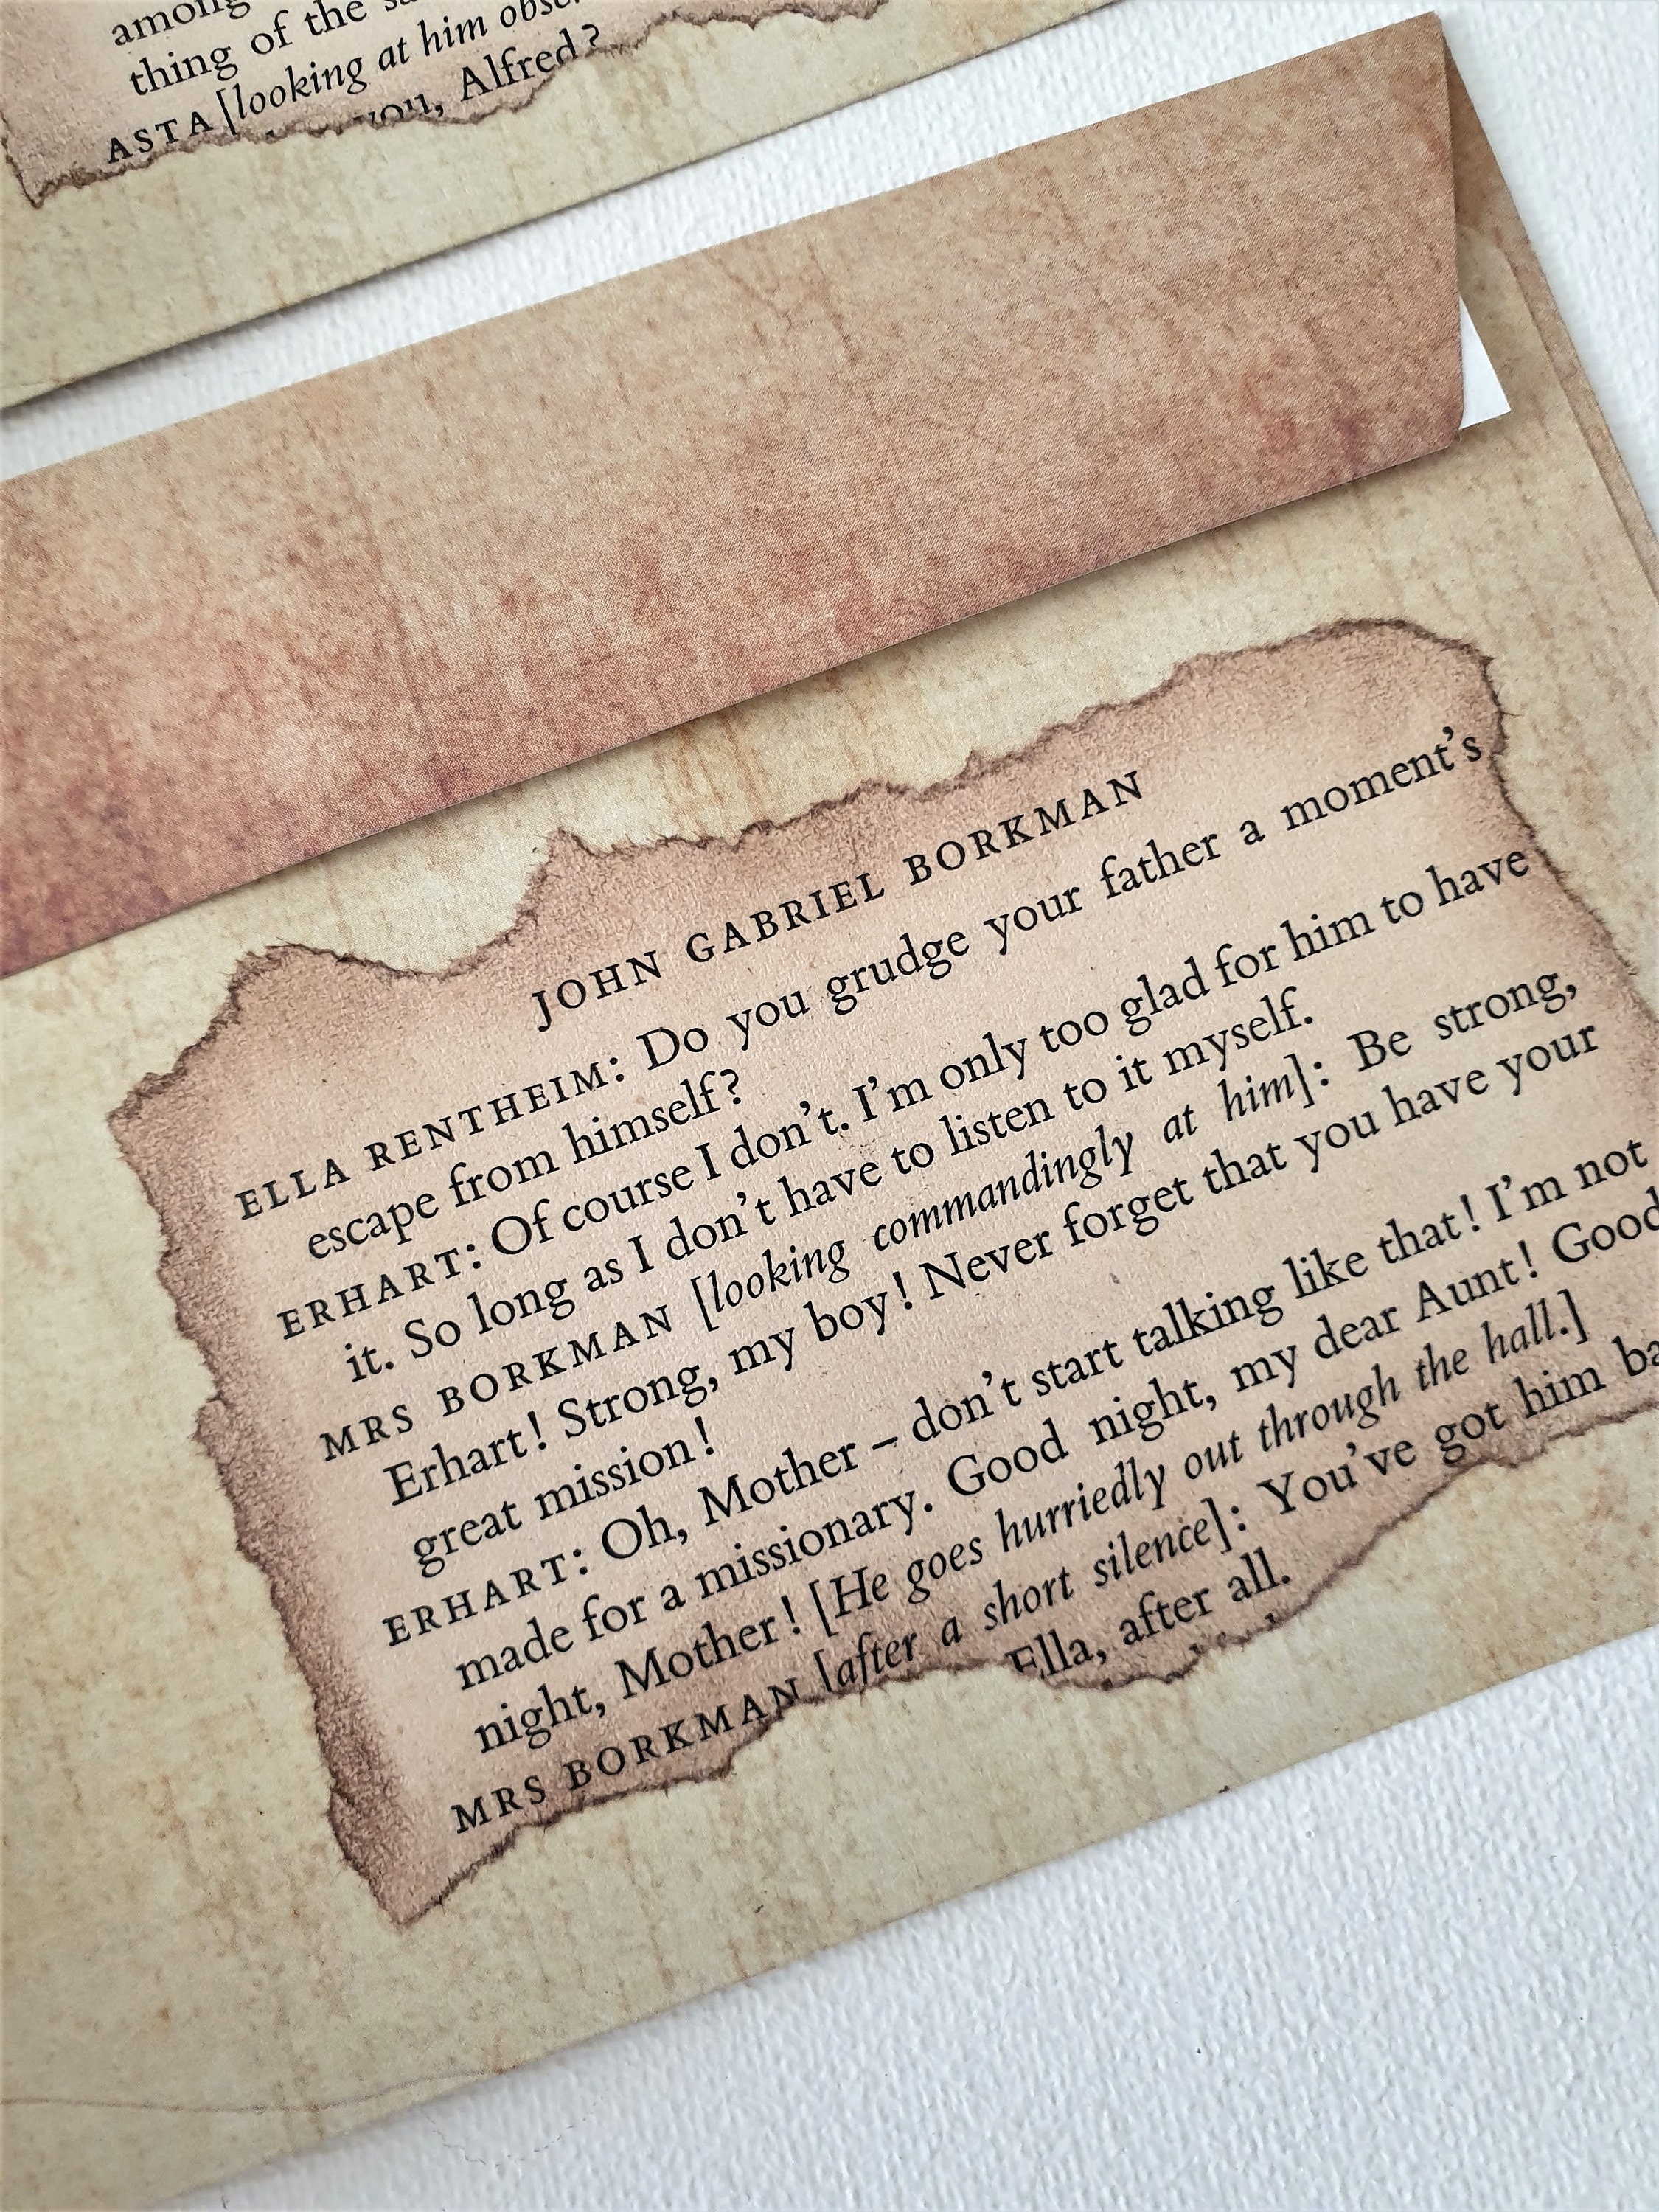 among
thing of the
ASTA [looking at him
you, Alfred?
JOHN GABRIEL BORKMAN
ELLA RENTHEIM: Do you grudge your father a moment's
escape from himself?
ERHART: Of course I don't. I'm only too glad for him to have
it. So long as I don't have to listen to it myself.
MRS BORKMAN [looking commandingly at him]: Be strong,
Erhart! Strong, my boy! Never forget that you have your
great mission!
ERHART: Oh, Mother – don't start talking like that! I'm not
made for a missionary. Good night, my dear Aunt! Good
night, Mother! [He goes hurriedly out through the hall.]
MRS BORKMAN [after a short silence]: You've got him
Ella, after all.